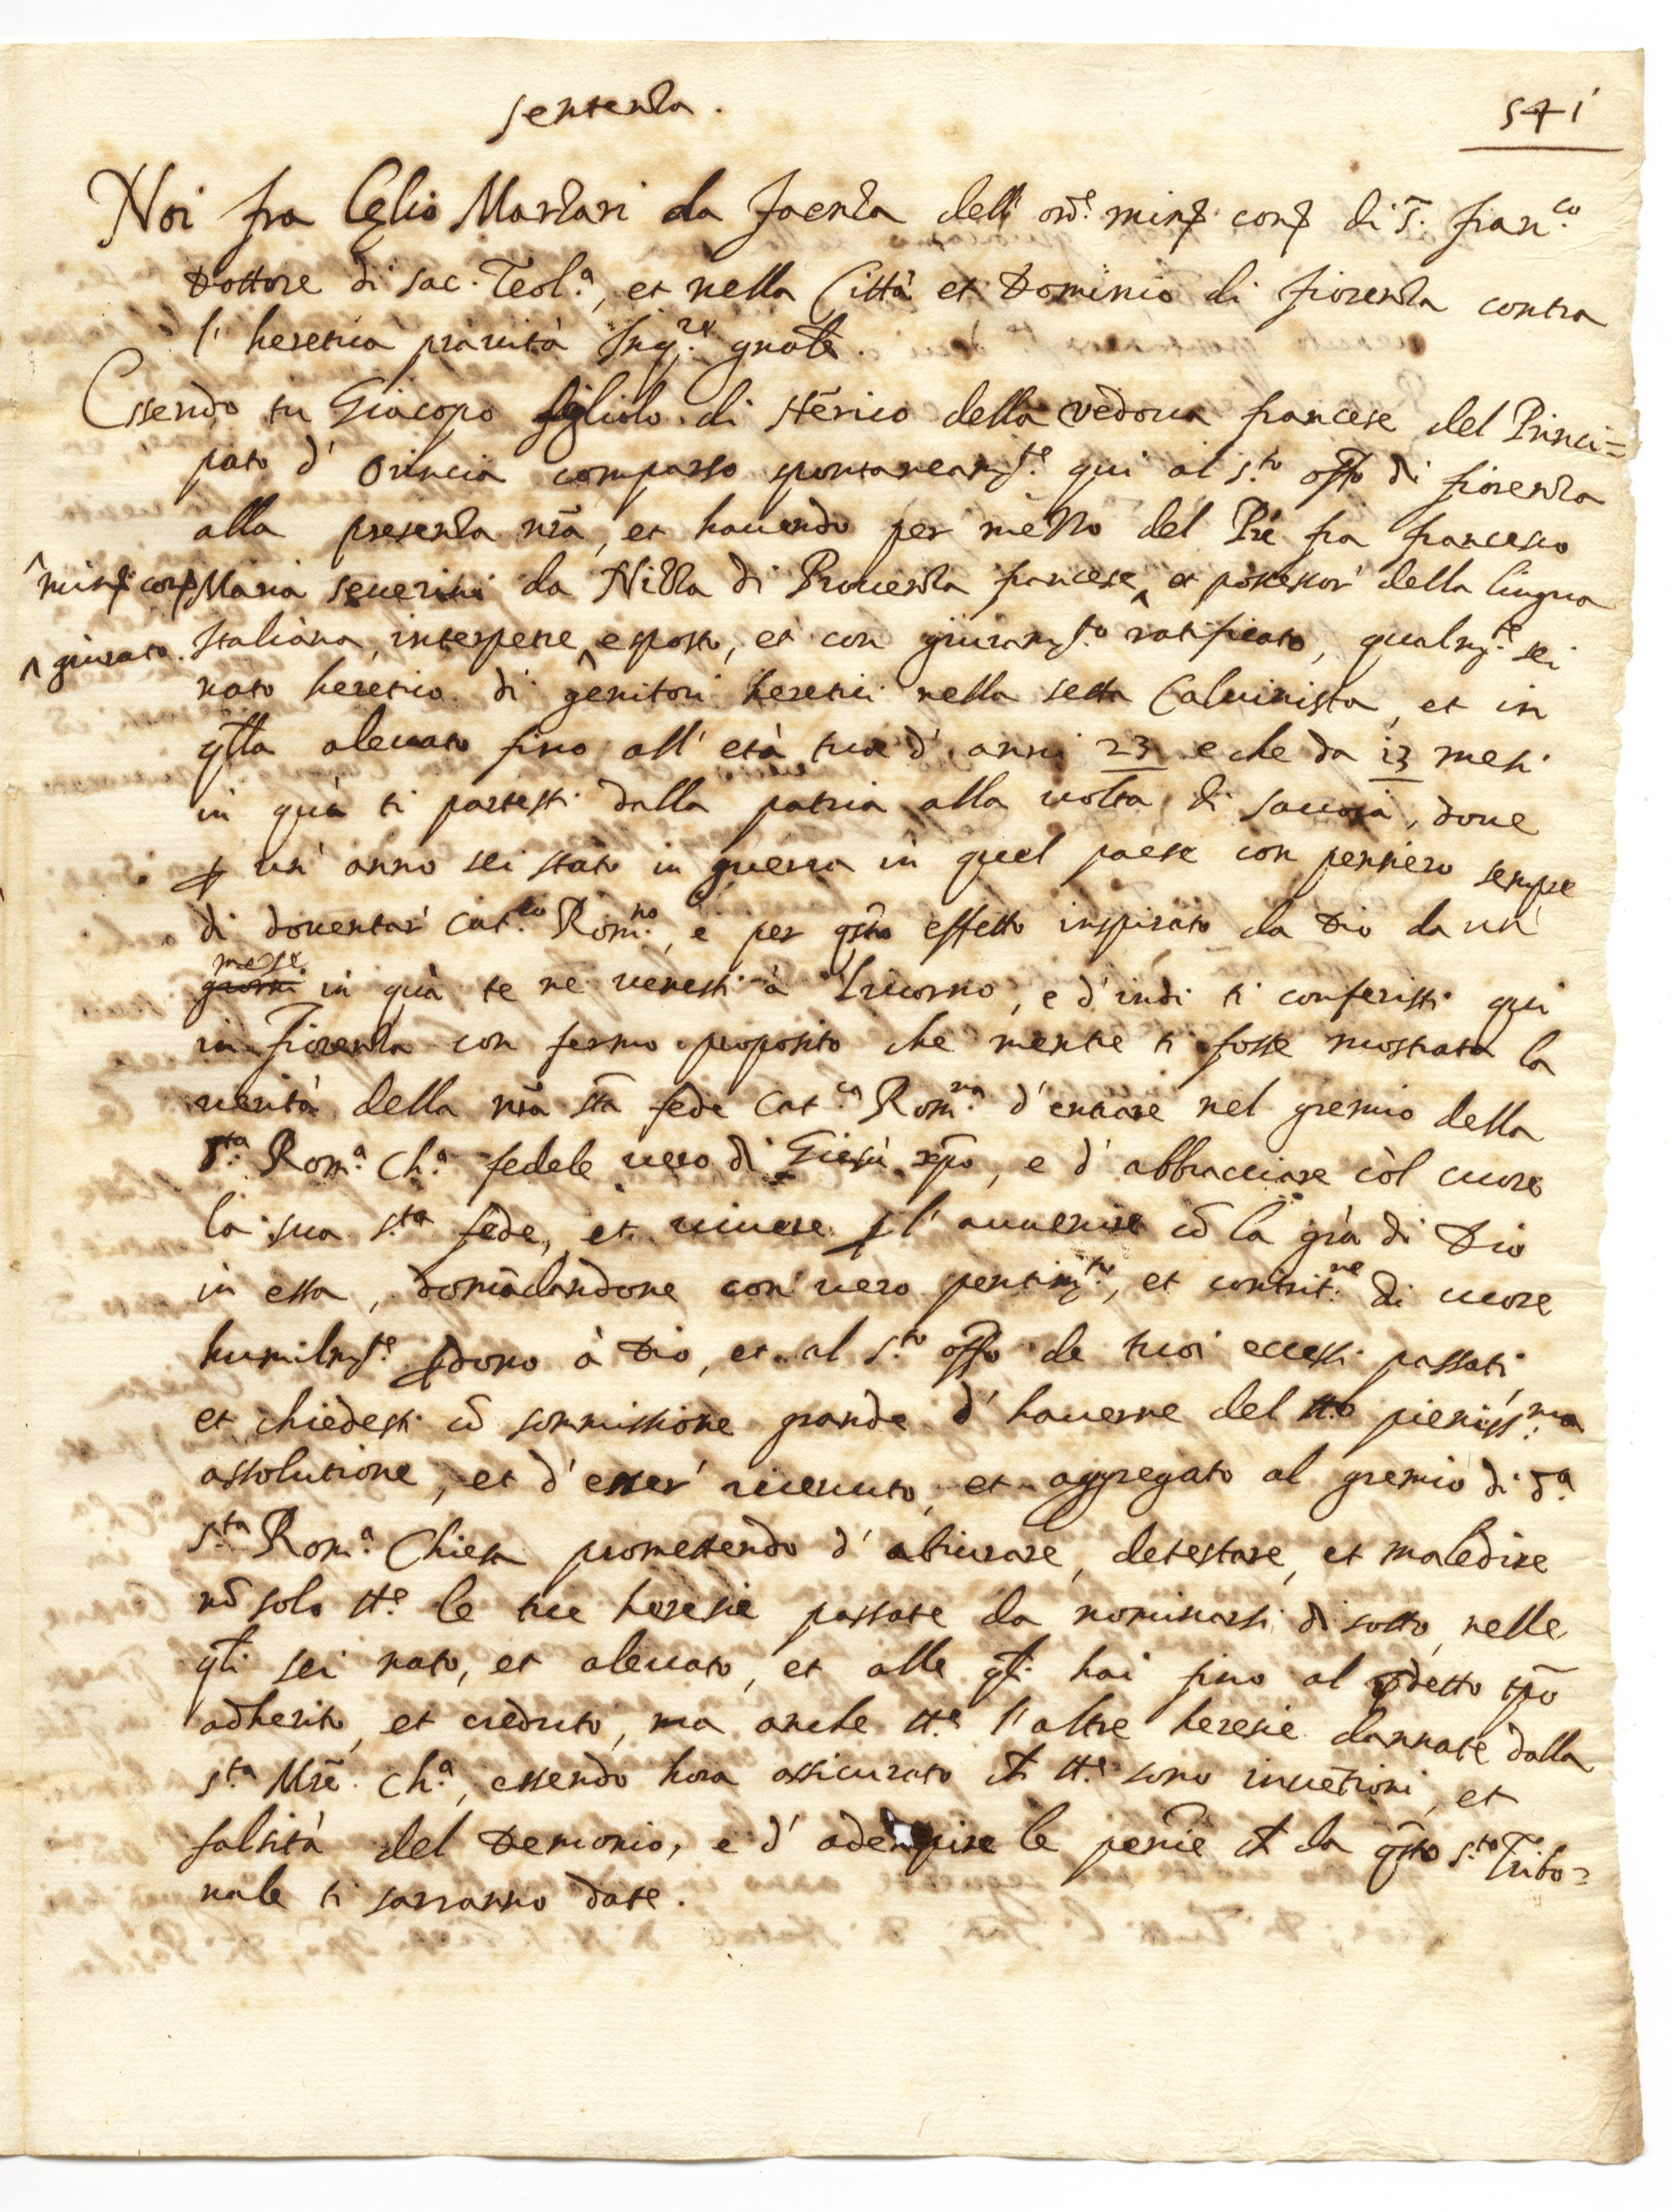 Sentenza.
541
Noi fra Celio Marzari da Faenza dell' ord.e min. con. di S. Fran.co
Dottore di sac. Teol.a, et nella Città et Dominio di Fiorenza contra
l' heretica pravità Inq.re gnale.
Essendo tu Giacopo figliolo di Hērico della vedova francese del Princi=
pato d' Orincia comparso spontaneam.te qui al S.to Offo di Fiorenza
alla presenza nrā, et havendo per mezzo del Prē fra Francesco
^min. con. Maria Severini da Nizza di Provenza francese ^ et possessor' della lingua
^giurato. Italiana, interpetre ^ esposto, et con giuram.to ratificato, qualm.te sei
nato heretico di genitori heretici nella setta Calvinista, et in
qlla alevato fino all' età tua d' anni 23 e che da 13 mesi
in quà ti partesti dalla patria alla volta di Savoia, dove
p un' anno sei stato in guerra in quel paese con pensiero sempre
di doventar' Cat.co Rom.no, e per qsto effetto inspirato da Dio da un'
mese
giorni in quà te ne venesti à Livorno, e d' indi ti conferisti qui
in Fiorenza con fermo proposito che mentre ti fosse mostrata la
verità della nrā stā fede Cat.ca Rom.na d' entrare nel gremio della
S.ta Rom.a Ch.a fedele vero di Giesù xpō, e d' abbracciare còl cuore
la sua s.ta fede, et vivere p l' avvenire cō la grā di Dio
in essa, domādandone con vero pentim.to, et contrit.ne di cuore
humilm.te pdono à Dio, et al S.to offo de tuoi eccessi passati
et chiedesti cō sommissione grande d' haverne del tto pieniss.ma
assolutione, et d' esser' ricevuto, et aggregato al gremio di d.a
S.ta Rom.a Chiesa promettendo d' abiurare, detestare, et maledire
nō solo tt.e le tue heresie passate da nominarsi di sotto, nelle
qli sei nato, et alevato, et alle qli hai fino al pdetto tpō
adherito, et creduto, ma anche tt.e l' altre heresie dannate dalla
S.ta Mrē Ch.a, essendo hora assicurato ch tt.e sono invētioni, et
falsità del Demonio, e d' adempire le penīe ch da qsto S.to Tribu=
nale ti sarranno date.